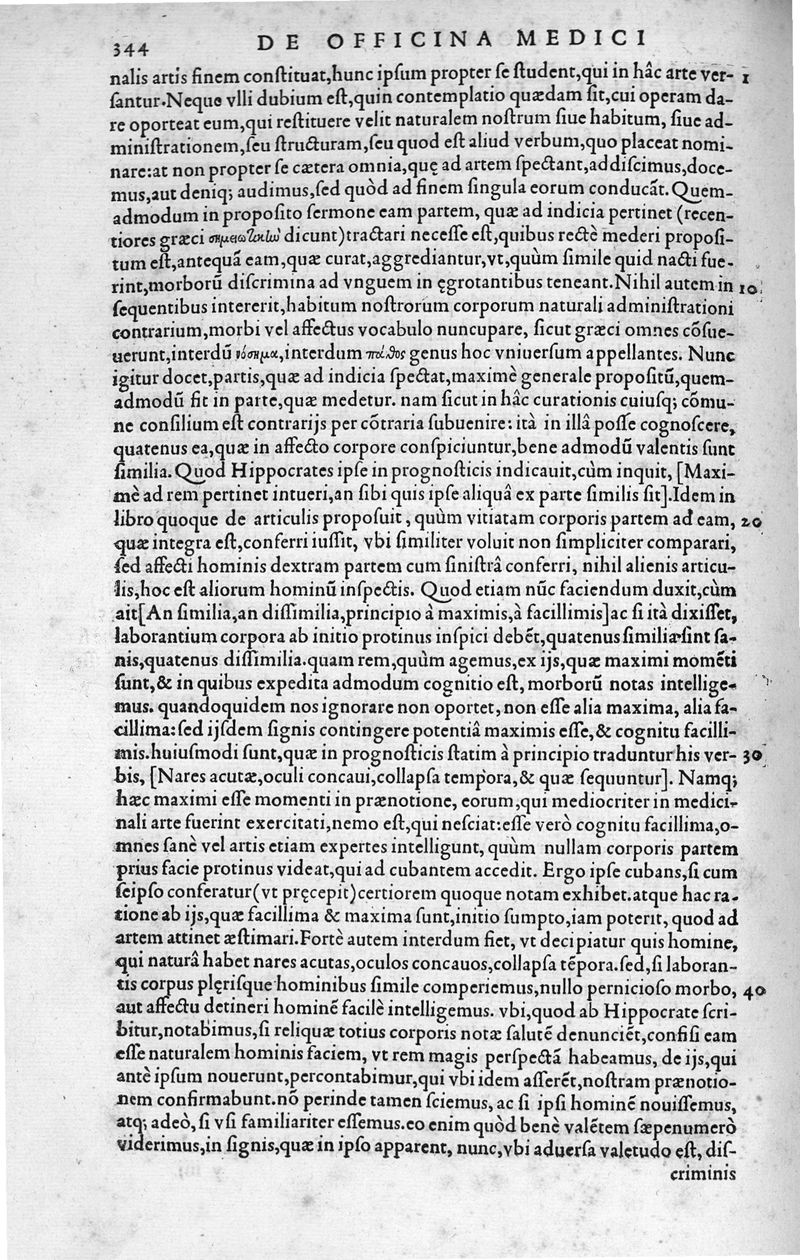 344 DE OFFICINA MEDICI
nalis artis finem conſtituat,hunc ipſum propter ſe ſtudent,qui in hâc arte ver- 1
ſantur.Neque vlli dubium eſt,quin contemplatio quædam ſit,cui operam da-
re oporteat eum,qui reſtituere velit naturalem noſtrum ſiue habitum, ſiue ad-
miniſtrationem,ſeu ſtructuram,ſeu quod eſt aliud verbum,quo placeat nomi-
nare:at non propter ſe cætera omnia,quę ad artem ſpectant,addiſcimus,doce-
mus,aut deniq; audimus,ſed quòd ad finem ſingula eorum conducãt. Quem-
admodum in propoſito ſermone eam partem, quæ ad indicia pertinet (recen-
tiores græci σημειωτικὼ dicunt)tractari neceſſe eſt,quibus rectè mederi propoſi-
tum eſt,antequã eam,quæ curat,aggrediantur,vt,quùm ſimile quid nacti fue-
rint,morborũ diſcrimina ad vnguem in ęgrotantibus teneant.Nihil autem in 10
ſequentibus intererit,habitum noſtrorum corporum naturali adminiſtrationi
contrarium,morbi vel affectus vocabulo nuncupare, ſicut græci omnes cõſue-
uerunt,interdũ νόσημα,interdum πάθος genus hoc vniuerſum appellantes. Nunc
igitur docet,partis,quæ ad indicia ſpectat,maximè generale propoſitũ,quem-
admodũ fit in parte,quæ medetur. nam ſicut in hâc curationis cuiuſq; cõmu-
ne conſilium eſt contrarijs per cõtraria ſubuenire: ità in illâ poſſe cognoſcere,
quatenus ea,quæ in affecto corpore conſpiciuntur,bene admodũ valentis ſunt
ſimilia.Quod Hippocrates ipſe in prognoſticis indicauit,cùm inquit, [Maxi-
mè ad rem pertinet intueri,an ſibi quis ipſe aliquâ ex parte ſimilis ſit].Idem in
libro quoque de articulis propoſuit, quùm vitiatam corporis partem ad eam, 20
quæ integra eſt,conferri iuſſit, vbi ſimiliter voluit non ſimpliciter comparari,
ſed affecti hominis dextram partem cum ſiniſtrâ conferri, nihil alienis articu-
lis,hoc eſt aliorum hominũ inſpectis. Quod etiam nũc faciendum duxit,cùm
ait[An ſimilia,an diſſimilia,principio à maximis,à facillimis]ac ſi ità dixiſſet,
laborantium corpora ab initio protinus inſpici debẽt,quatenus ſimilia ſint ſa-
nis,quatenus diſſimilia.quam rem,quùm agemus,ex ijs,quæ maximi momẽti
ſunt,& in quibus expedita admodum cognitio eſt, morborũ notas intellige-
mus. quandoquidem nos ignorare non oportet, non eſſe alia maxima, alia fa-
cillima:ſed ijſdem ſignis contingere potentiâ maximis eſſe,& cognitu facilli-
mis.huiuſmodi ſunt,quæ in prognoſticis ſtatim à principio traduntur his ver- 30
bis, [Nares acutæ,oculi concaui,collapſa tempora,& quæ ſequuntur]. Namq;
hæc maximi eſſe momenti in prænotione, eorum,qui mediocriter in medici-
nali arte fuerint exercitati,nemo eſt,qui neſciat:eſſe verò cognitu facillima,o-
mnes ſanè vel artis etiam expertes intelligunt, quùm nullam corporis partem
prius facie protinus videat,qui ad cubantem accedit. Ergo ipſe cubans,ſi cum
ſeipſo conferatur(vt pręcepit)certiorem quoque notam exhibet.atque hac ra-
tione ab ijs,quæ facillima & maxima ſunt,initio ſumpto,iam poterit, quod ad
artem attinet æſtimari.Fortè autem interdum fiet, vt decipiatur quis homine,
qui naturâ habet nares acutas,oculos concauos,collapſa tẽpora.ſed,ſi laboran-
tis corpus plęriſque hominibus ſimile comperiemus,nullo pernicioſo morbo, 40
aut affectu detineri hominẽ facilè intelligemus. vbi,quod ab Hippocrate ſcri-
bitur,notabimus,ſi reliquæ totius corporis notæ ſalutẽ denunciẽt,confiſi eam
eſſe naturalem hominis faciem, vt rem magis perſpectã habeamus, de ijs,qui
antè ipſum nouerunt,percontabimur,qui vbi idem aſſerẽt,noſtram prænotio-
nem confirmabunt.nõ perinde tamen ſciemus, ac ſi ipſi hominẽ nouiſſemus,
atq; adeò,ſi vſi familiariter eſſemus.eo enim quòd benè valẽtem ſæpenumerò
viderimus,in ſignis,quæ in ipſo apparent, nunc,vbi aduerſa valetudo eſt, diſ-
criminis